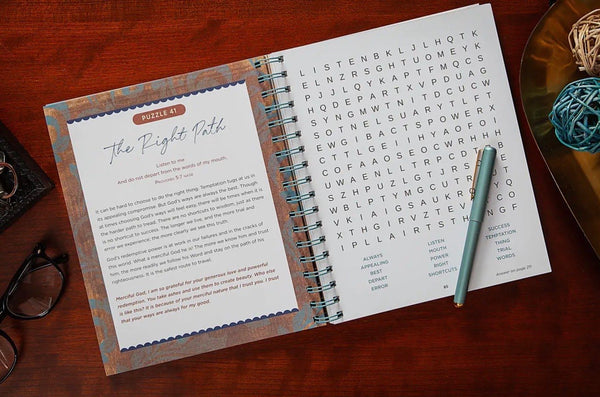 PUZZLE 41
The Right Path
Listen to me
And do not depart from the words of my mouth.
PROVERBS 5:7 NASB
It can be hard to choose to do the right thing. Temptation tugs at us in
its appealing compromise. But God's ways are always the best. Though
at times choosing God's ways will feel easy, there will be times when it is
the harder path to tread. There are no shortcuts to wisdom, just as there
is no shortcut to success. The longer we live, and the more trial and
error we experience, the more clearly we see this truth.
God's redemptive power is at work in our failures and in the cracks of
this world. What a merciful God he is! The more we know him and trust
him, the more readily we follow his Word and stay on the path of his
righteousness. It is the safest route to travel.
Merciful God, I am so grateful for your generous love and powerful
redemption. You take ashes and use them to create beauty. Who else
is like this? It is because of your merciful nature that I trust you. I trust
that your ways are always for my good.
L I S T E N B K L J L H Q T K
E L N Z R S G H T U O M E Y K
P J J L Q Y K A P T F M Q C S
H Q D E P A R T X V P D U A G
S Y N G M W T N I T D C U C W
S O T N E L S U A R Y T L F T
E W G I B A C T S P O W E R X
C T T L G E I I H Y A O F O I
C O F A A O S E O C W R H H H
U W A E N L L T R P C D T
S Z H P U Z L G T J R S
W B L P T Y M G C U T R
V K I A I G S A U K Y Q
X T H G I R V Z T E V C O
I P L L A I R T S T H I N G F
ALWAYS
APPEALING
BEST
DEPART
ERROR
LISTEN
MOUTH
POWER
RIGHT
SHORTCUTS
SUCCESS
TEMPTATION
THING
TRIAL
WORDS
Answer on page